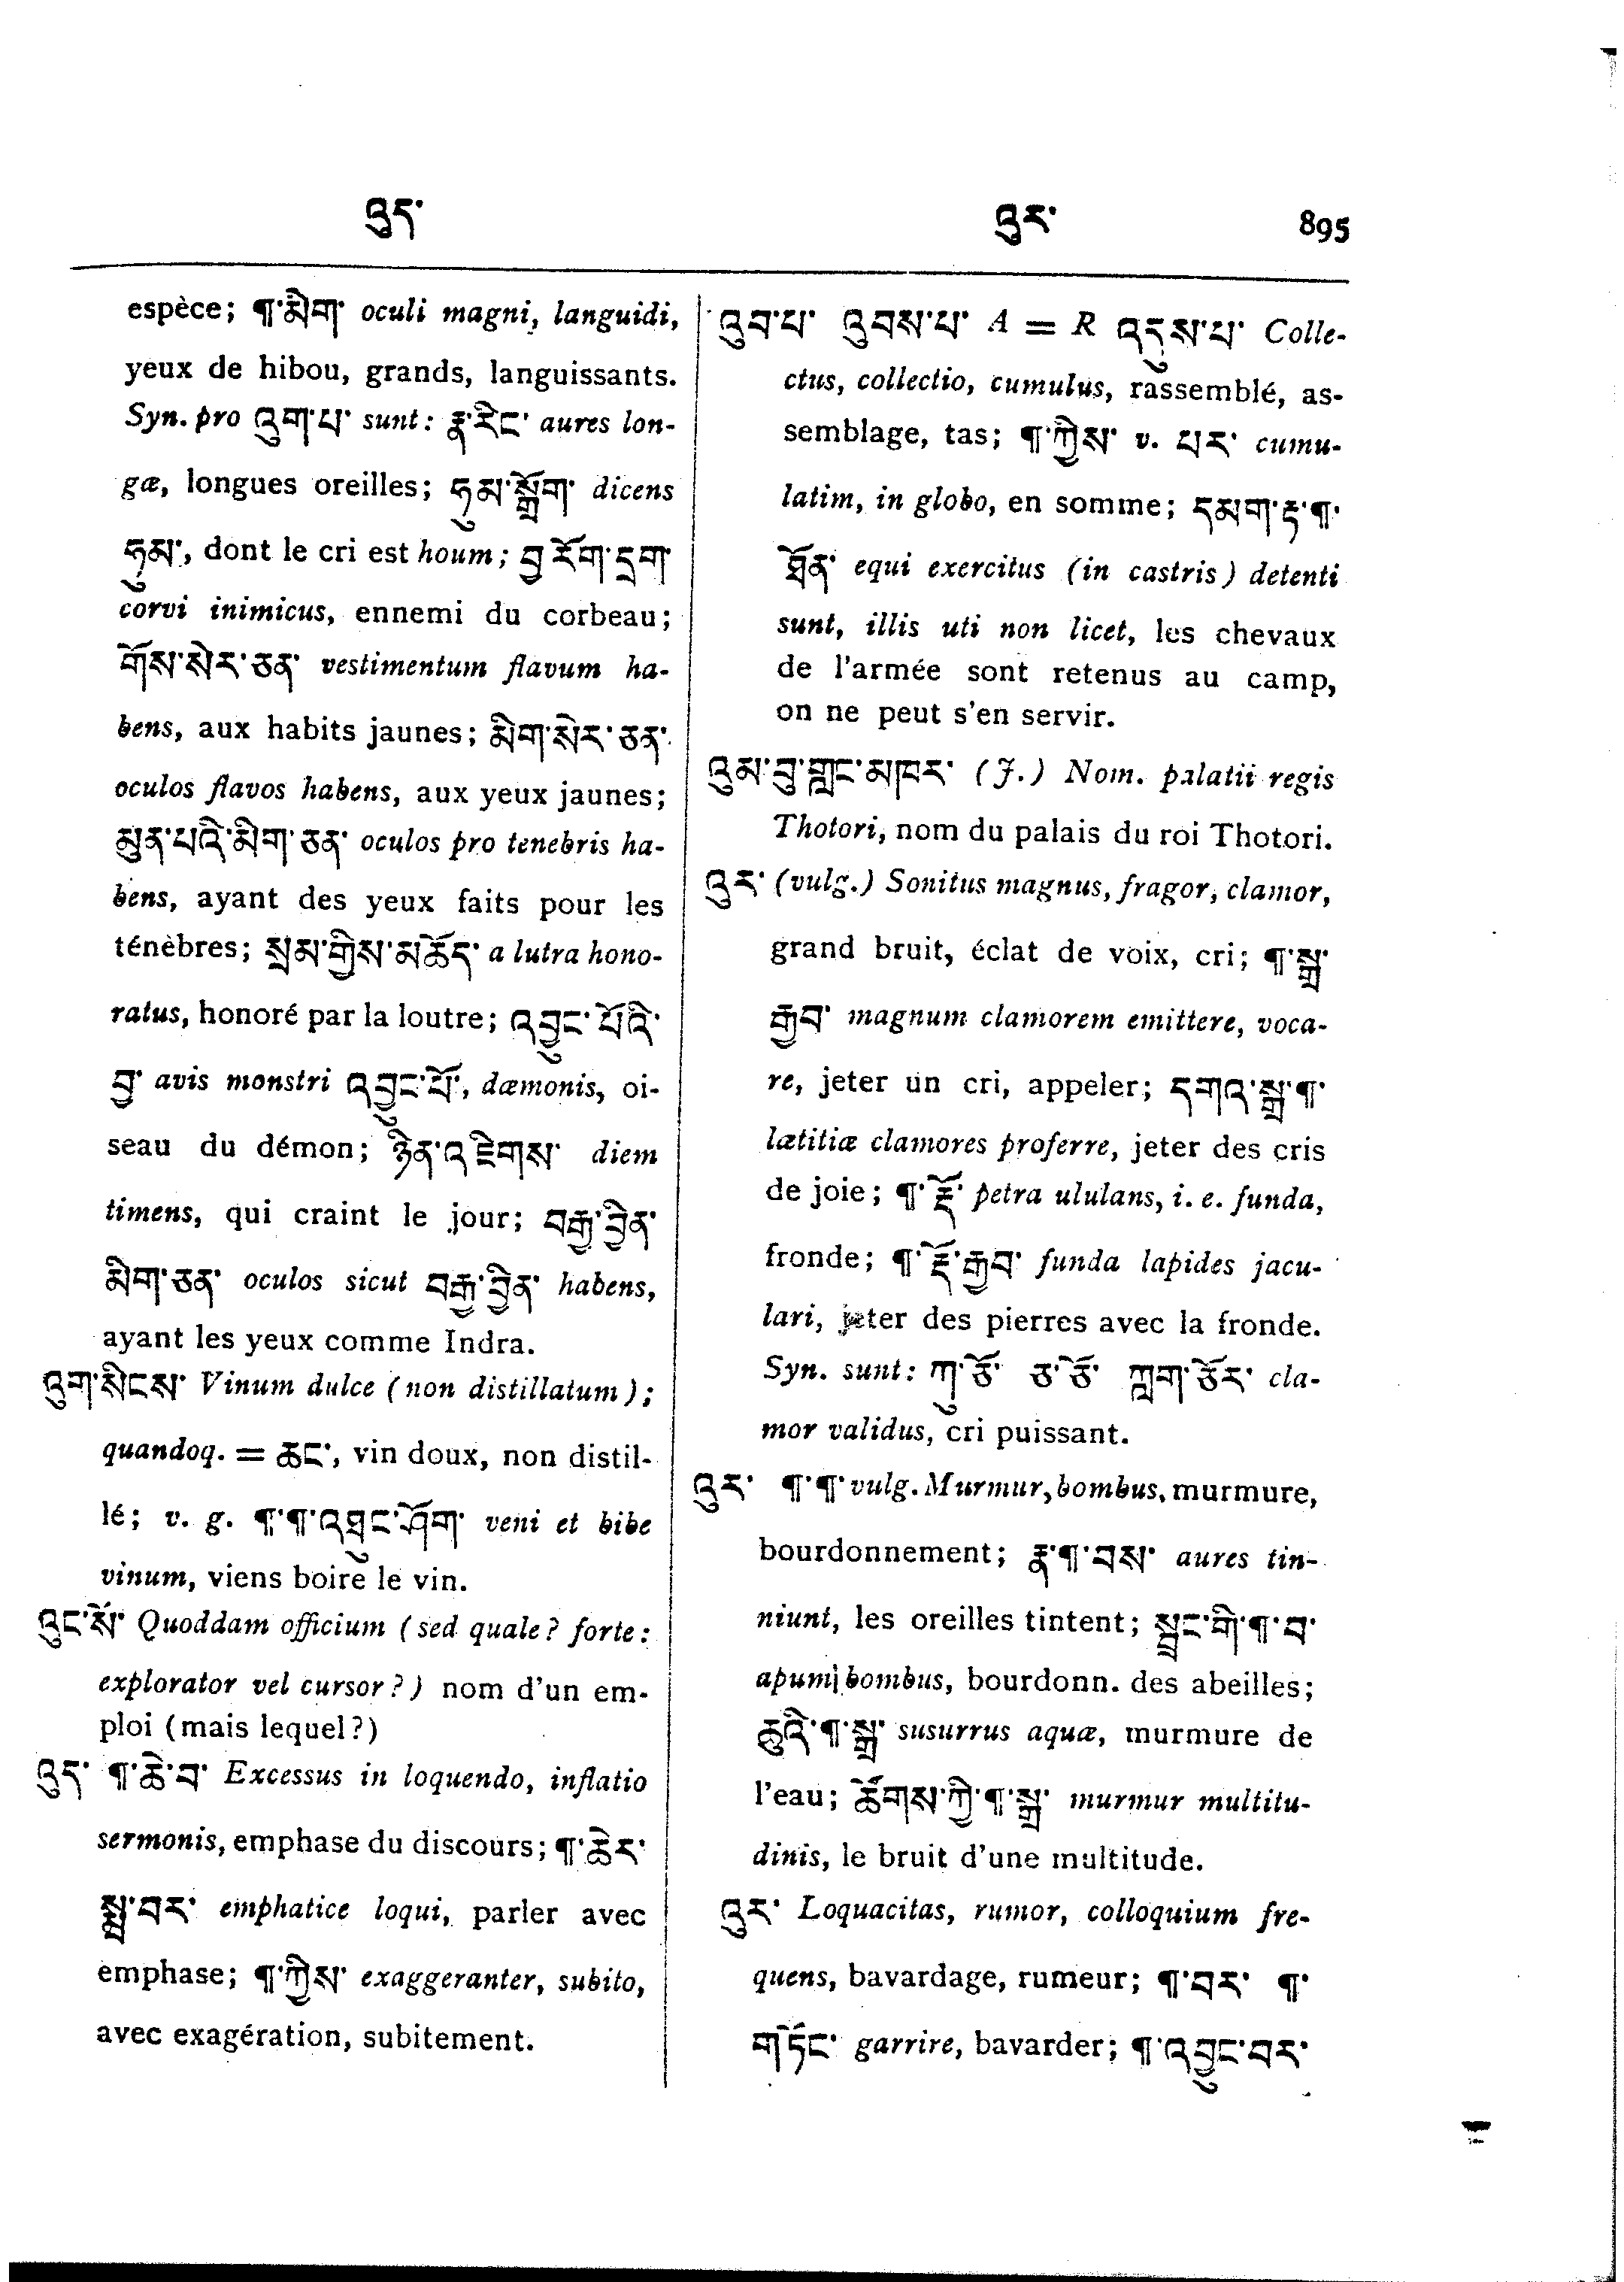 འུད་
འུར་ 895
espèce; ¶་མིག་ oculi magni, languidi,
yeux de hibou, grands, languissants.
Syn. pro འུག་པ་ sunt: རྣ་རིང་ aures lon-
gæ, longues oreilles; ཧུམ་སྒྲོག་ dicens
ཧུམ་, dont le cri est houm; བྱ་རོག་དགྲ་
corvi inimicus, ennemi du corbeau;
གོས་སེར་ཅན་ vestimentum flavum ha-
bens, aux habits jaunes; མིག་སེར་ཅན་
oculos flavos habens, aux yeux jaunes;
མུན་པའི་མིག་ཅན་ oculos pro tenebris ha-
bens, ayant des yeux faits pour les
ténèbres; སྲམ་གྱིས་མཆོད་ a lutra hono-
ratus, honoré par la loutre; འབྱུང་པོའི་
བྱ་ avis monstri འབྱུང་པོ་, dæmonis, oi-
seau du démon; ཉིན་འཇིགས་ diem
timens, qui craint le jour; བརྒྱ་བྱིན་
མིག་ཅན་ oculos sicut བརྒྱ་བྱིན་ habens,
ayant les yeux comme Indra.
འུག་སིངས་ Vinum dulce (non distillatum);
quandoq. = ཆང་, vin doux, non distil-
lé; v. g. ¶་¶་འཐུང་ཤོག་ veni et bibe
vinum, viens boire le vin.
འུང་སོ་ Quoddam officium (sed quale? forte:
explorator vel cursor?) nom d'un em-
ploi (mais lequel?)
འུད་ ¶་ཆེ་བ་ Excessus in loquendo, inflatio
sermonis, emphase du discours; ¶་ཆེར་
སྨྲ་བར་ emphatice loqui, parler avec
emphase; ¶་ཀྱིས་ exaggeranter, subito,
avec exagération, subitement.
འུབ་པ་ འུབས་པ་ A = R འདུས་པ་ Colle-
ctus, collectio, cumulus, rassemblé, as-
semblage, tas; ¶་ཀྱིས་ v. པར་ cumu-
latim, in globo, en somme; དམག་རྟ་¶་
ཐོན་ equi exercitus (in castris) detenti
sunt, illis uti non licet, les chevaux
de l'armée sont retenus au camp,
on ne peut s'en servir.
འུམ་བུ་གླང་མཁར་ (J.) Nom. palatii regis
Thotori, nom du palais du roi Thotori.
འུར་ (vulg.) Sonitus magnus, fragor, clamor,
grand bruit, éclat de voix, cri; ¶་སྒྲ་
རྒྱབ་ magnum clamorem emittere, voca-
re, jeter un cri, appeler; དགའ་སྒྲ་¶་
lætitiæ clamores proferre, jeter des cris
de joie; ¶་རྡོ་ petra ululans, i. e. funda,
fronde; ¶་རྡོ་རྒྱབ་ funda lapides jacu-
lari, jeter des pierres avec la fronde.
Syn. sunt: ཀུ་ཅོ་ ཅ་ཅོ་ ཀླག་ཅོར་ cla-
mor validus, cri puissant.
འུར་ ¶་¶་ vulg. Murmur, bombus, murmure,
bourdonnement; རྣ་¶་བས་ aures tin-
niunt, les oreilles tintent; སྦྲང་གི་¶་བ་
apum bombus, bourdonn. des abeilles;
ཆུའི་¶་སྒྲ་ susurrus aquæ, murmure de
l'eau; ཚོགས་ཀྱི་¶་སྒྲ་ murmur multitu-
dinis, le bruit d'une multitude.
འུར་ Loquacitas, rumor, colloquium fre-
quens, bavardage, rumeur; ¶་བར་ ¶་
གཏོང་ garrire, bavarder; ¶་འབྱུང་བར་